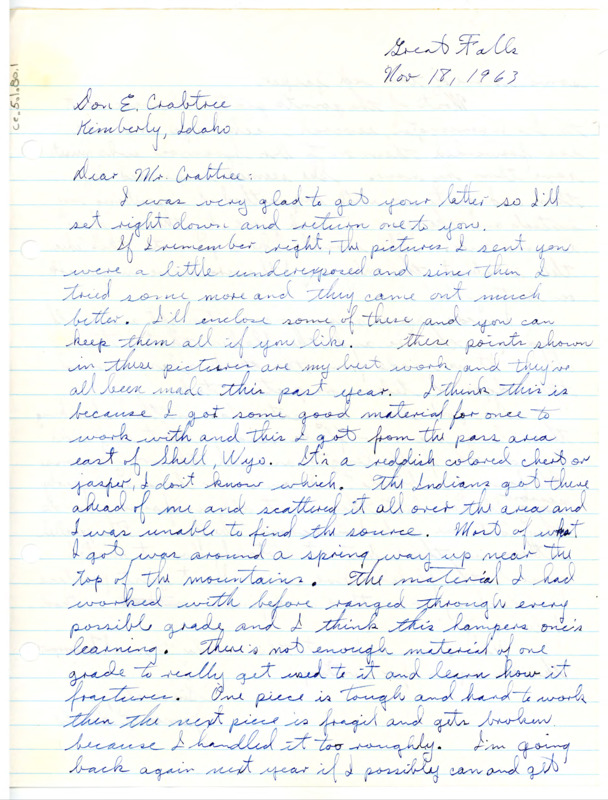 Great Falls
Nov 18, 1963
cc.5.1.80.1
Don E. Crabtree
Kimberly, Idaho
Dear Mr. Crabtree:
I was very glad to get your letter so I'll
set right down and return one to you.
If I remember right, the pictures I sent you
were a little underexposed and since then I
tried some more and they came out much
better. I'll enclose some of these and you can
keep them all if you like. these points shown
in these pictures are my best work and they've
all been made this past year. I think this is
because I got some good material for once to
work with and this I got from the pass area
east of Shell, Wyo. It's a reddish colored chert or
jasper, I don't know which. The Indians got there
ahead of me and scattered it all over the area and
I was unable to find the source. Most of what
I got was around a spring way up near the
top of the mountains. The material I had
worked with before ranged through every
possible grade and I think this hampers one's
learning. There's not enough material of one
grade to really get used to it and learn how it
fractures. One piece is tough and hard to work
then the next piece is fragil and gets broken
because I handled it too roughly. I'm going
back again next year if I possibly can and get